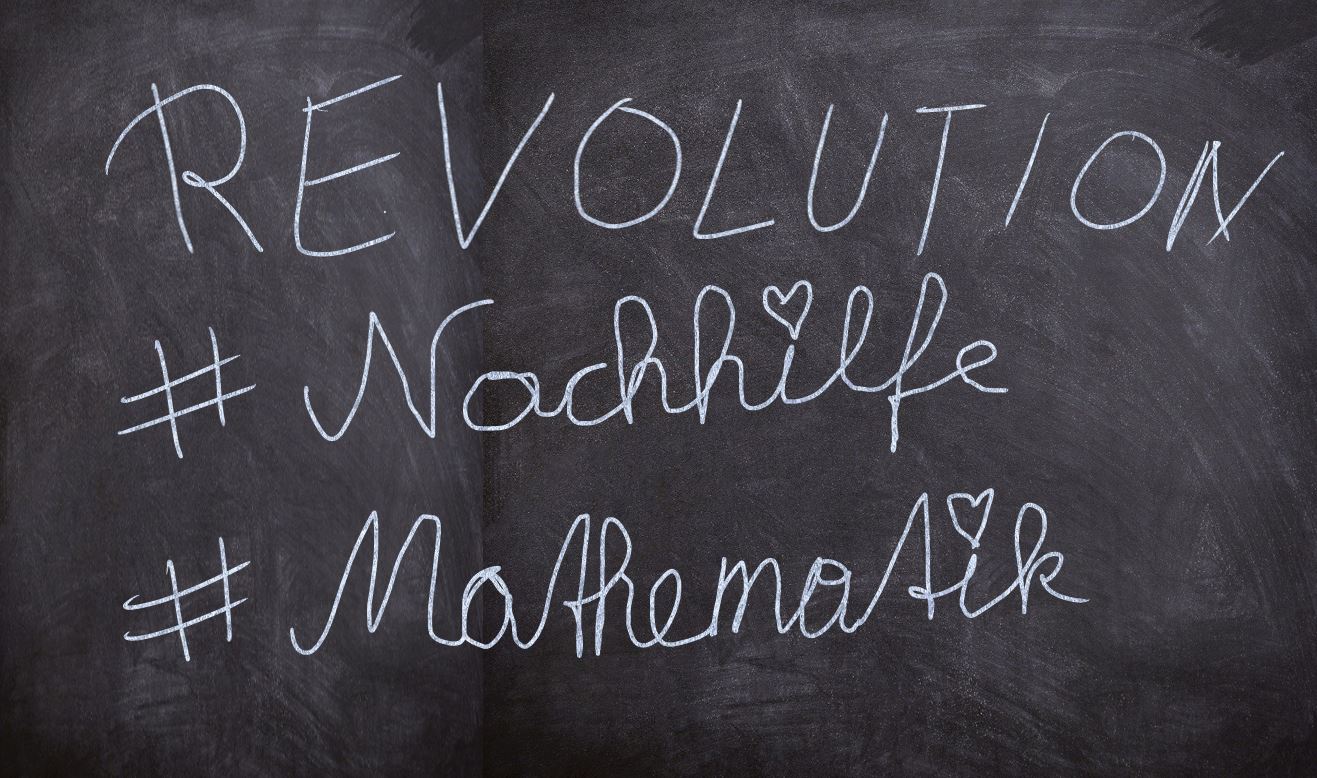 REVOLUTION
# Nachhilfe
# Mathematik